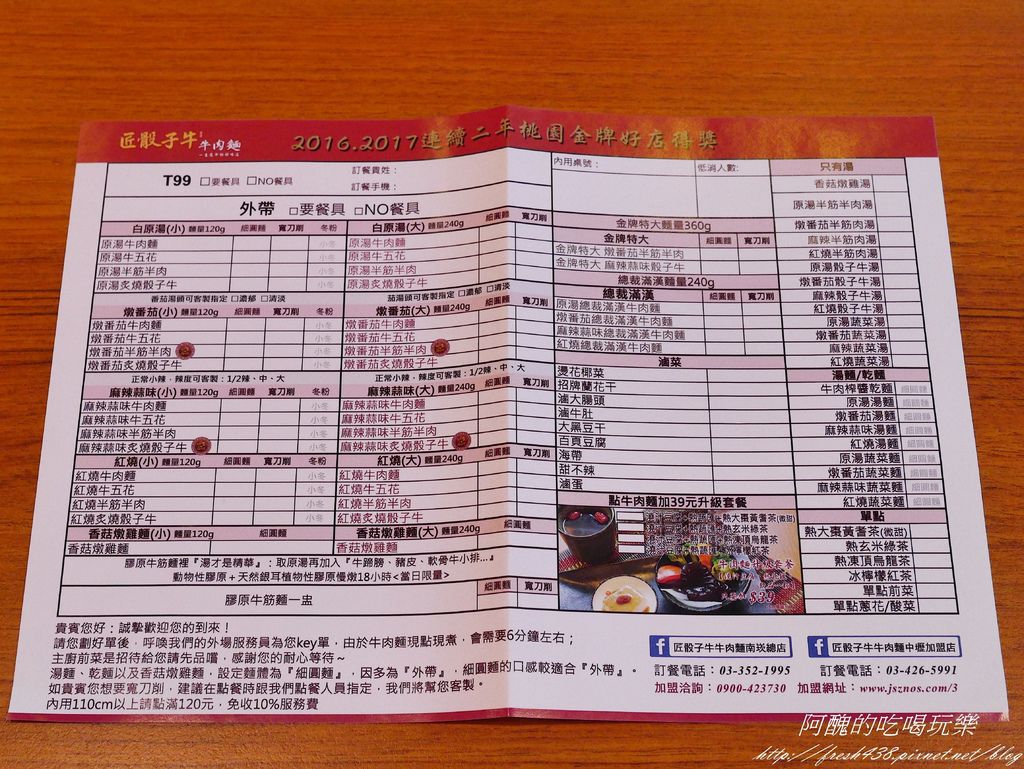 匠骰子牛 牛肉麵
2016.2017連續二年桃園金牌好店得獎
T99 □要餐具 □NO餐具
訂餐貴姓：
訂餐手機：
外帶 □要餐具 □NO餐具
白原湯(小) 麵量120g 細圓麵 寬刀削 冬粉
原湯牛肉麵 小冬
原湯牛五花
原湯半筋半肉 小冬
原湯炙燒骰子牛 小冬
番茄湯頭可客製指定 □濃郁 □清淡
燉番茄(小) 麵量120g 細圓麵 寬刀削 冬粉
燉番茄牛肉麵 小冬
燉番茄牛五花 小冬
燉番茄半筋半肉 小冬
燉番茄炙燒骰子牛 小冬
正常小辣，辣度可客製：1/2辣、中、大
麻辣蒜味(小) 麵量120g 細圓麵 寬刀削 冬粉
麻辣蒜味牛肉麵 小冬
麻辣蒜味牛五花
麻辣蒜味半筋半肉 小冬
麻辣蒜味炙燒骰子牛 小冬
紅燒(小) 麵量120g 細圓麵 寬刀削 冬粉
紅燒牛肉麵 小冬
紅燒牛五花 小冬
紅燒半筋半肉 小冬
紅燒炙燒骰子牛 小冬
香菇燉雞麵(小) 麵量120g 細圓麵
香菇燉雞麵
白原湯(大) 麵量240g 細圓麵 寬刀削
原湯牛肉麵
原湯牛五花
原湯半筋半肉
原湯炙燒骰子牛
茄湯頭可客製指定 □濃郁 □清淡
燉番茄(大) 麵量240g 細圓麵 寬刀削
燉番茄牛肉麵
燉番茄牛五花
燉番茄半筋半肉
燉番茄炙燒骰子牛
正常小辣，辣度可客製：1/2辣、中、大
麻辣蒜味(大) 麵量240g 細圓麵 寬刀削
麻辣蒜味牛肉麵
麻辣蒜味牛五花
麻辣蒜味半筋半肉
麻辣蒜味炙燒骰子牛
紅燒(大) 麵量240g 細圓麵 寬刀削
紅燒牛肉麵
紅燒牛五花
紅燒半筋半肉
紅燒炙燒骰子牛
香菇燉雞麵(大) 麵量240g 細圓麵
香菇燉雞麵
膠原牛筋麵裡『湯才是精華』：取原湯再加入『牛蹄膀、豬皮、軟骨牛小排...』
動物性膠原＋天然銀耳植物性膠原慢燉18小時<當日限量>
細圓麵 寬刀削
膠原牛筋麵一盅
內用桌號： 低消人數:
金牌特大麵量360g
金牌特大 細圓麵 寬刀削
金牌特大 燉番茄半筋半肉
金牌特大 麻辣蒜味骰子牛
總裁滿漢麵量240g
總裁滿漢 細圓麵 寬刀削
原湯總裁滿漢牛肉麵
燉番茄總裁滿漢牛肉麵
麻辣蒜味總裁滿漢牛肉麵
紅燒總裁滿漢牛肉麵
滷菜
燙花椰菜
招牌蘭花干
滷大腸頭
滷牛肚
大黑豆干
百頁豆腐
海帶
甜不辣
滷蛋
點牛肉麵加39元升級套餐
熱大棗黃耆茶(微甜)
熱玄米綠茶
熱凍頂烏龍茶
$39
只有湯
香菇燉雞湯
原湯半筋半肉湯
燉番茄半筋肉湯
麻辣半筋肉湯
紅燒半筋肉湯
原湯骰子牛湯
燉番茄骰子牛湯
麻辣骰子牛湯
紅燒骰子牛湯
原湯蔬菜湯
燉番茄蔬菜湯
麻辣蔬菜湯
紅燒蔬菜湯
湯麵/乾麵
牛肉榨醬乾麵 細圓麵
原湯湯麵 細圓麵
燉番茄湯麵 細圓麵
麻辣蒜味湯麵 細圓麵
紅燒湯麵 細圓麵
原湯蔬菜麵 細圓麵
燉番茄蔬菜麵 細圓麵
麻辣蒜味蔬菜麵 細圓麵
紅燒蔬菜麵 細圓麵
單點
熱大棗黃耆茶(微甜)
熱玄米綠茶
熱凍頂烏龍茶
冰檸檬紅茶
單點前菜
單點蔥花/酸菜
貴賓您好：誠摯歡迎您的到來！
請您劃好單後，呼喚我們的外場服務員為您key單，由於牛肉麵現點現煮，會需要6分鐘左右；
主廚前菜是招待給您請先品嚐，感謝您的耐心等待～
湯麵、乾麵以及香菇燉雞麵，設定麵體為『細圓麵』，因多為『外帶』，細圓麵的口感較適合『外帶』。
如貴賓您想要寬刀削，建議在點餐時跟我們點餐人員指定，我們將幫您客製。
內用110cm以上請點滿120元，免收10%服務費
匠骰子牛牛肉麵南崁總店
訂餐電話：03-352-1995
匠骰子牛牛肉麵中壢加盟店
訂餐電話：03-426-5991
加盟洽詢：0900-423730 加盟網址：www.jsznos.com/3
阿醜的吃喝玩樂
http://fresh438.pixnet.net/blog